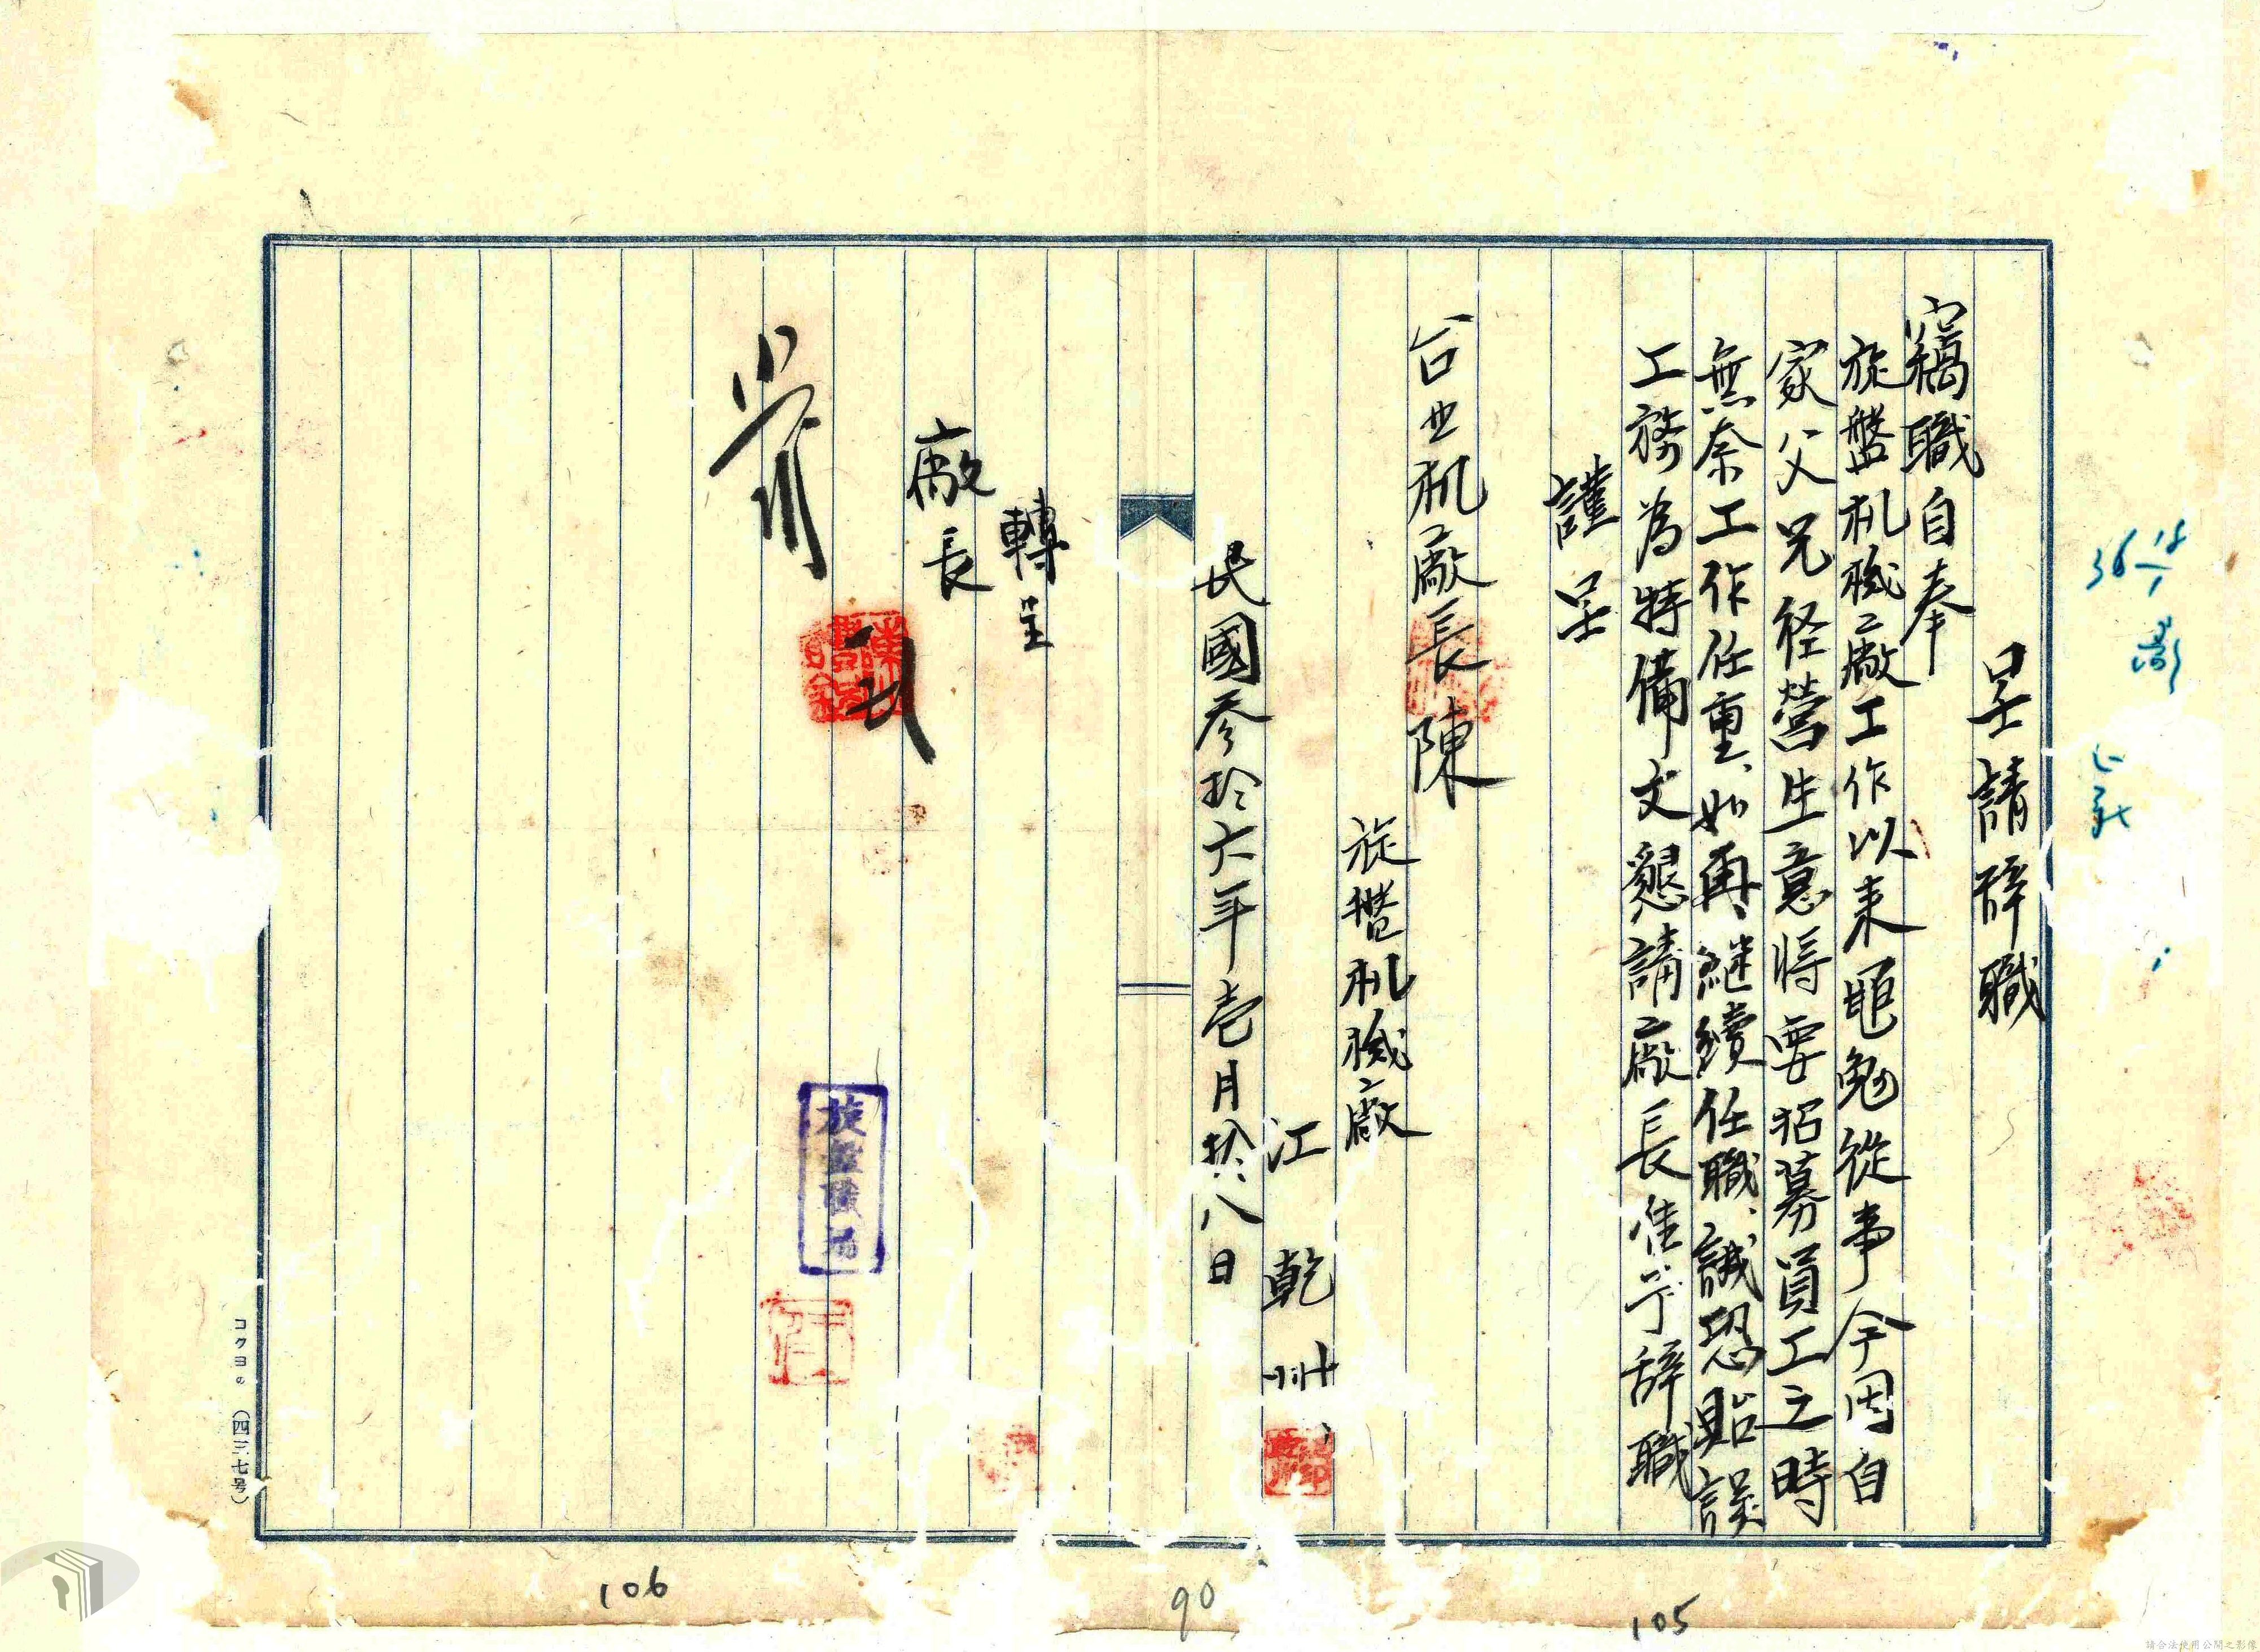 呈請辞職
竊職自奉
旋盤机械廠工作以来黽勉從事今因自
家父兄径營生意將要招募員工之時
無奈工作任重、如再、継續任職、誠恐貽誤
工務為特備文懇請廠長准予辞職
謹呈
台业机廠長陳
旋盤机械廠
江乾州、
民國参拾六年壱月拾八日
轉呈
廠長
旋盤職場
36 18/1
コクヨ。(四三七号)
106
90
105
請合法使用公開之影像